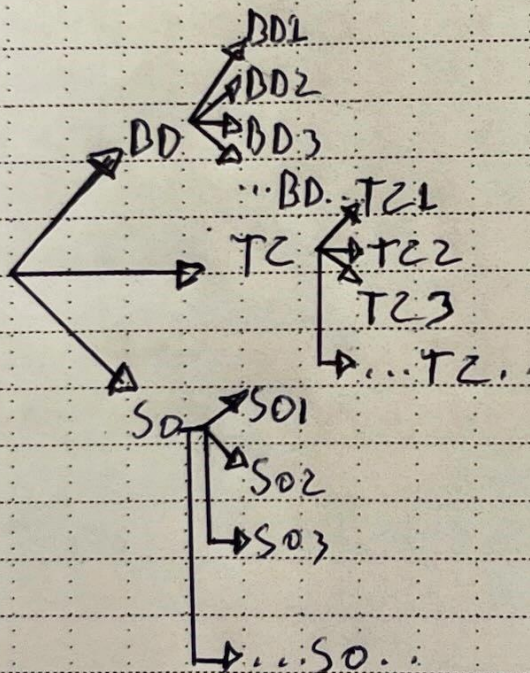 BD1
BD2
BD BD3
...BD..
TZ1
TZ TZ2
TZ3
...TZ..
SO SO1
SO2
SO3
...SO..